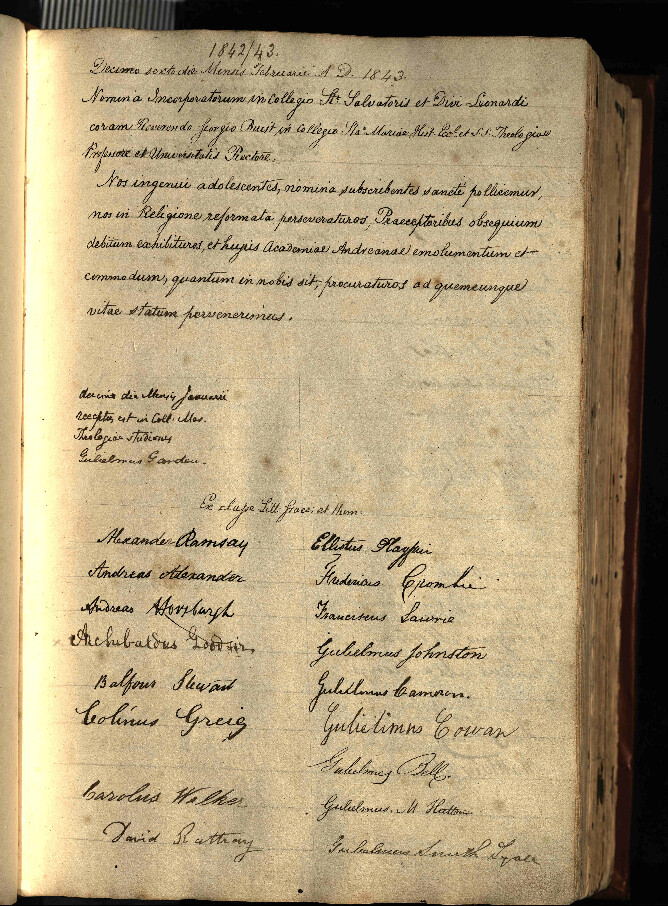 1842/43.
Decimo sexto die Mensis Februarii A. D. 1843.
Nomina Incorporatorum in Collegio Sti Salvatoris et Divi Leonardi
coram Reverendo Georgio Buist in Collegio Stae Mariae Hist. Eccl. et S.S. Theologiae
Professore et Universitatis Rectore.
Nos ingenui adolescentes, nomina subscribentes sancte pollicemur,
nos in Religione reformata perseveraturos, Praeceptoribus obsequium
debitum exhibituros, et hujus Academiae Andreanae emolumentum et
commodum, quantum in nobis sit, procuraturos ad quemcunque
vitae statum pervenerimus.
decimo die Mensis Januarii
receptus est in Coll. Mar.
Theologiae studiosus
Gulielmus Garden.
Ex classe Litt. Graec. et Hum.
Alexander Ramsay
Andreas Alexander
Andreas Horsburgh
Archibaldus Goodsir
Balfour Stewart
Colinus Greig
Carolus Walker
David Rattray
Playfair
Fredericus Crombie
Franciscus Laurie
Gulielmus Johnston
Gulielmus Cameron.
Gulielimus Cowan
Gulielmus Bell.
Gulielmus. M
Gulielmus Smith